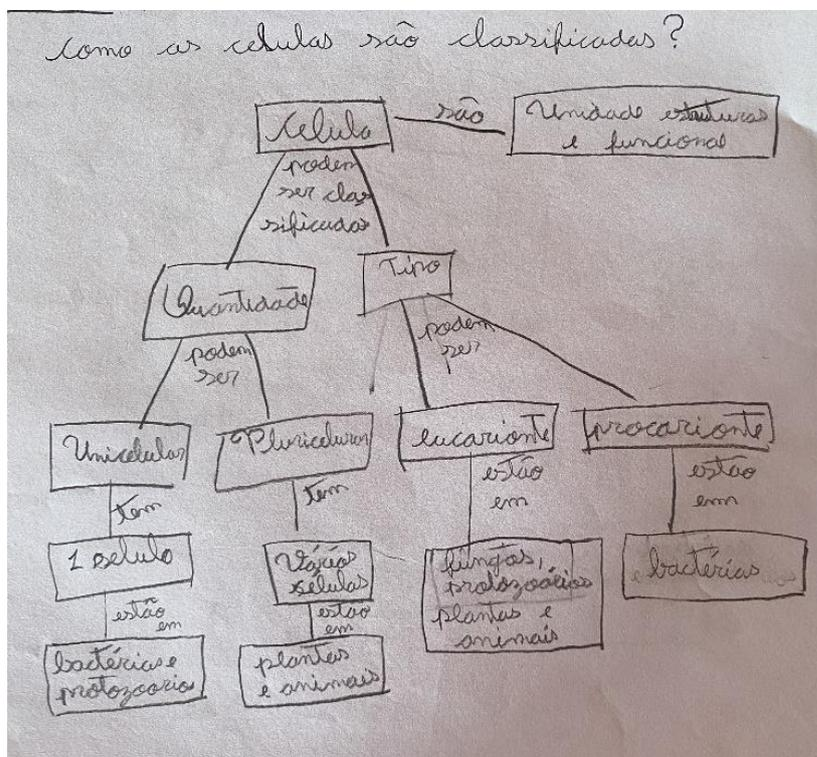 Como as celulas são classificadas?
Celula
são
Unidade estruturas
e funcional
podem
ser clas
sificadas
Quantidade
Tipo
podem
ser
podem
ser
Unicelular
Pluricelular
eucarionte
procarionte
tem
tem
estão
em
estão
em
1 selula
Várias
sélulas
fungos,
protozoários
plantas e
animais
bactérias
estão
em
estão
em
bactérias e
protozoarios
plantas
e animais